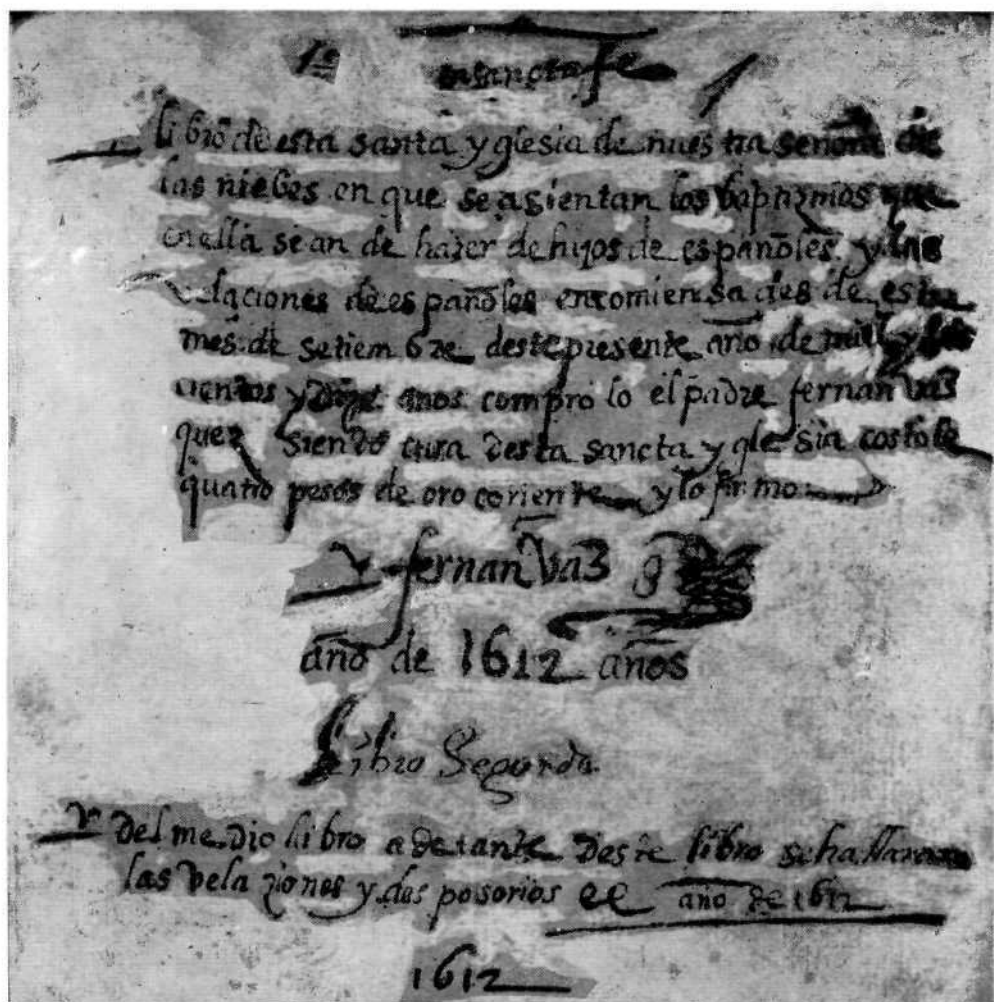 1º en sancta fe 1
libro de esta santa yglesia de nuestra señora de
las niebes en que se asientan los baptizmos que
en ella se an de hazer de hijos de españoles. y las
velaciones de españoles encomiensa desde este
mes de setiembre deste presente año de mill y seis
cientos y doze años comprolo el padre fernan vas
quez siendo cura desta sancta yglesia costole
quatro pesos de oro coriente y lo firmo
fernan vas
año de 1612 años
Libro Segundo
del medio libro adelante deste libro se hallaran
las velaziones y desposorios año de 1612
1612